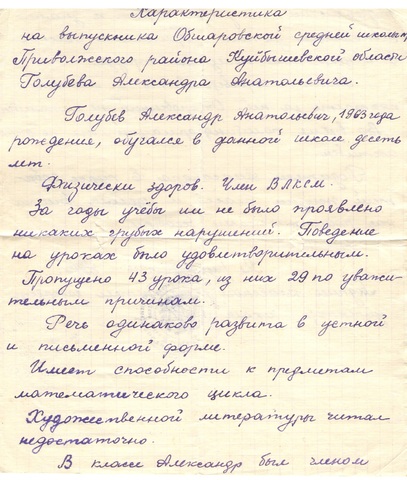 Характеристика
на выпускника Обшаровской средней школы,
Приволжского района Куйбышевской области
Голубева Александра Анатольевича.
Голубев Александр Анатольевич, 1963 года
рождения, обучался в данной школе десять
лет.
Физически здоров. Член ВЛКСМ.
За годы учёбы им не было проявлено
никаких грубых нарушений. Поведение
на уроках было удовлетворительным.
Пропущено 43 урока, из них 29 по уважи-
тельным причинам.
Речь одинаково развита в устной
и письменной форме.
Имеет способности к предметам
математического цикла.
Художественной литературы читал
недостаточно.
В классе Александр был членом